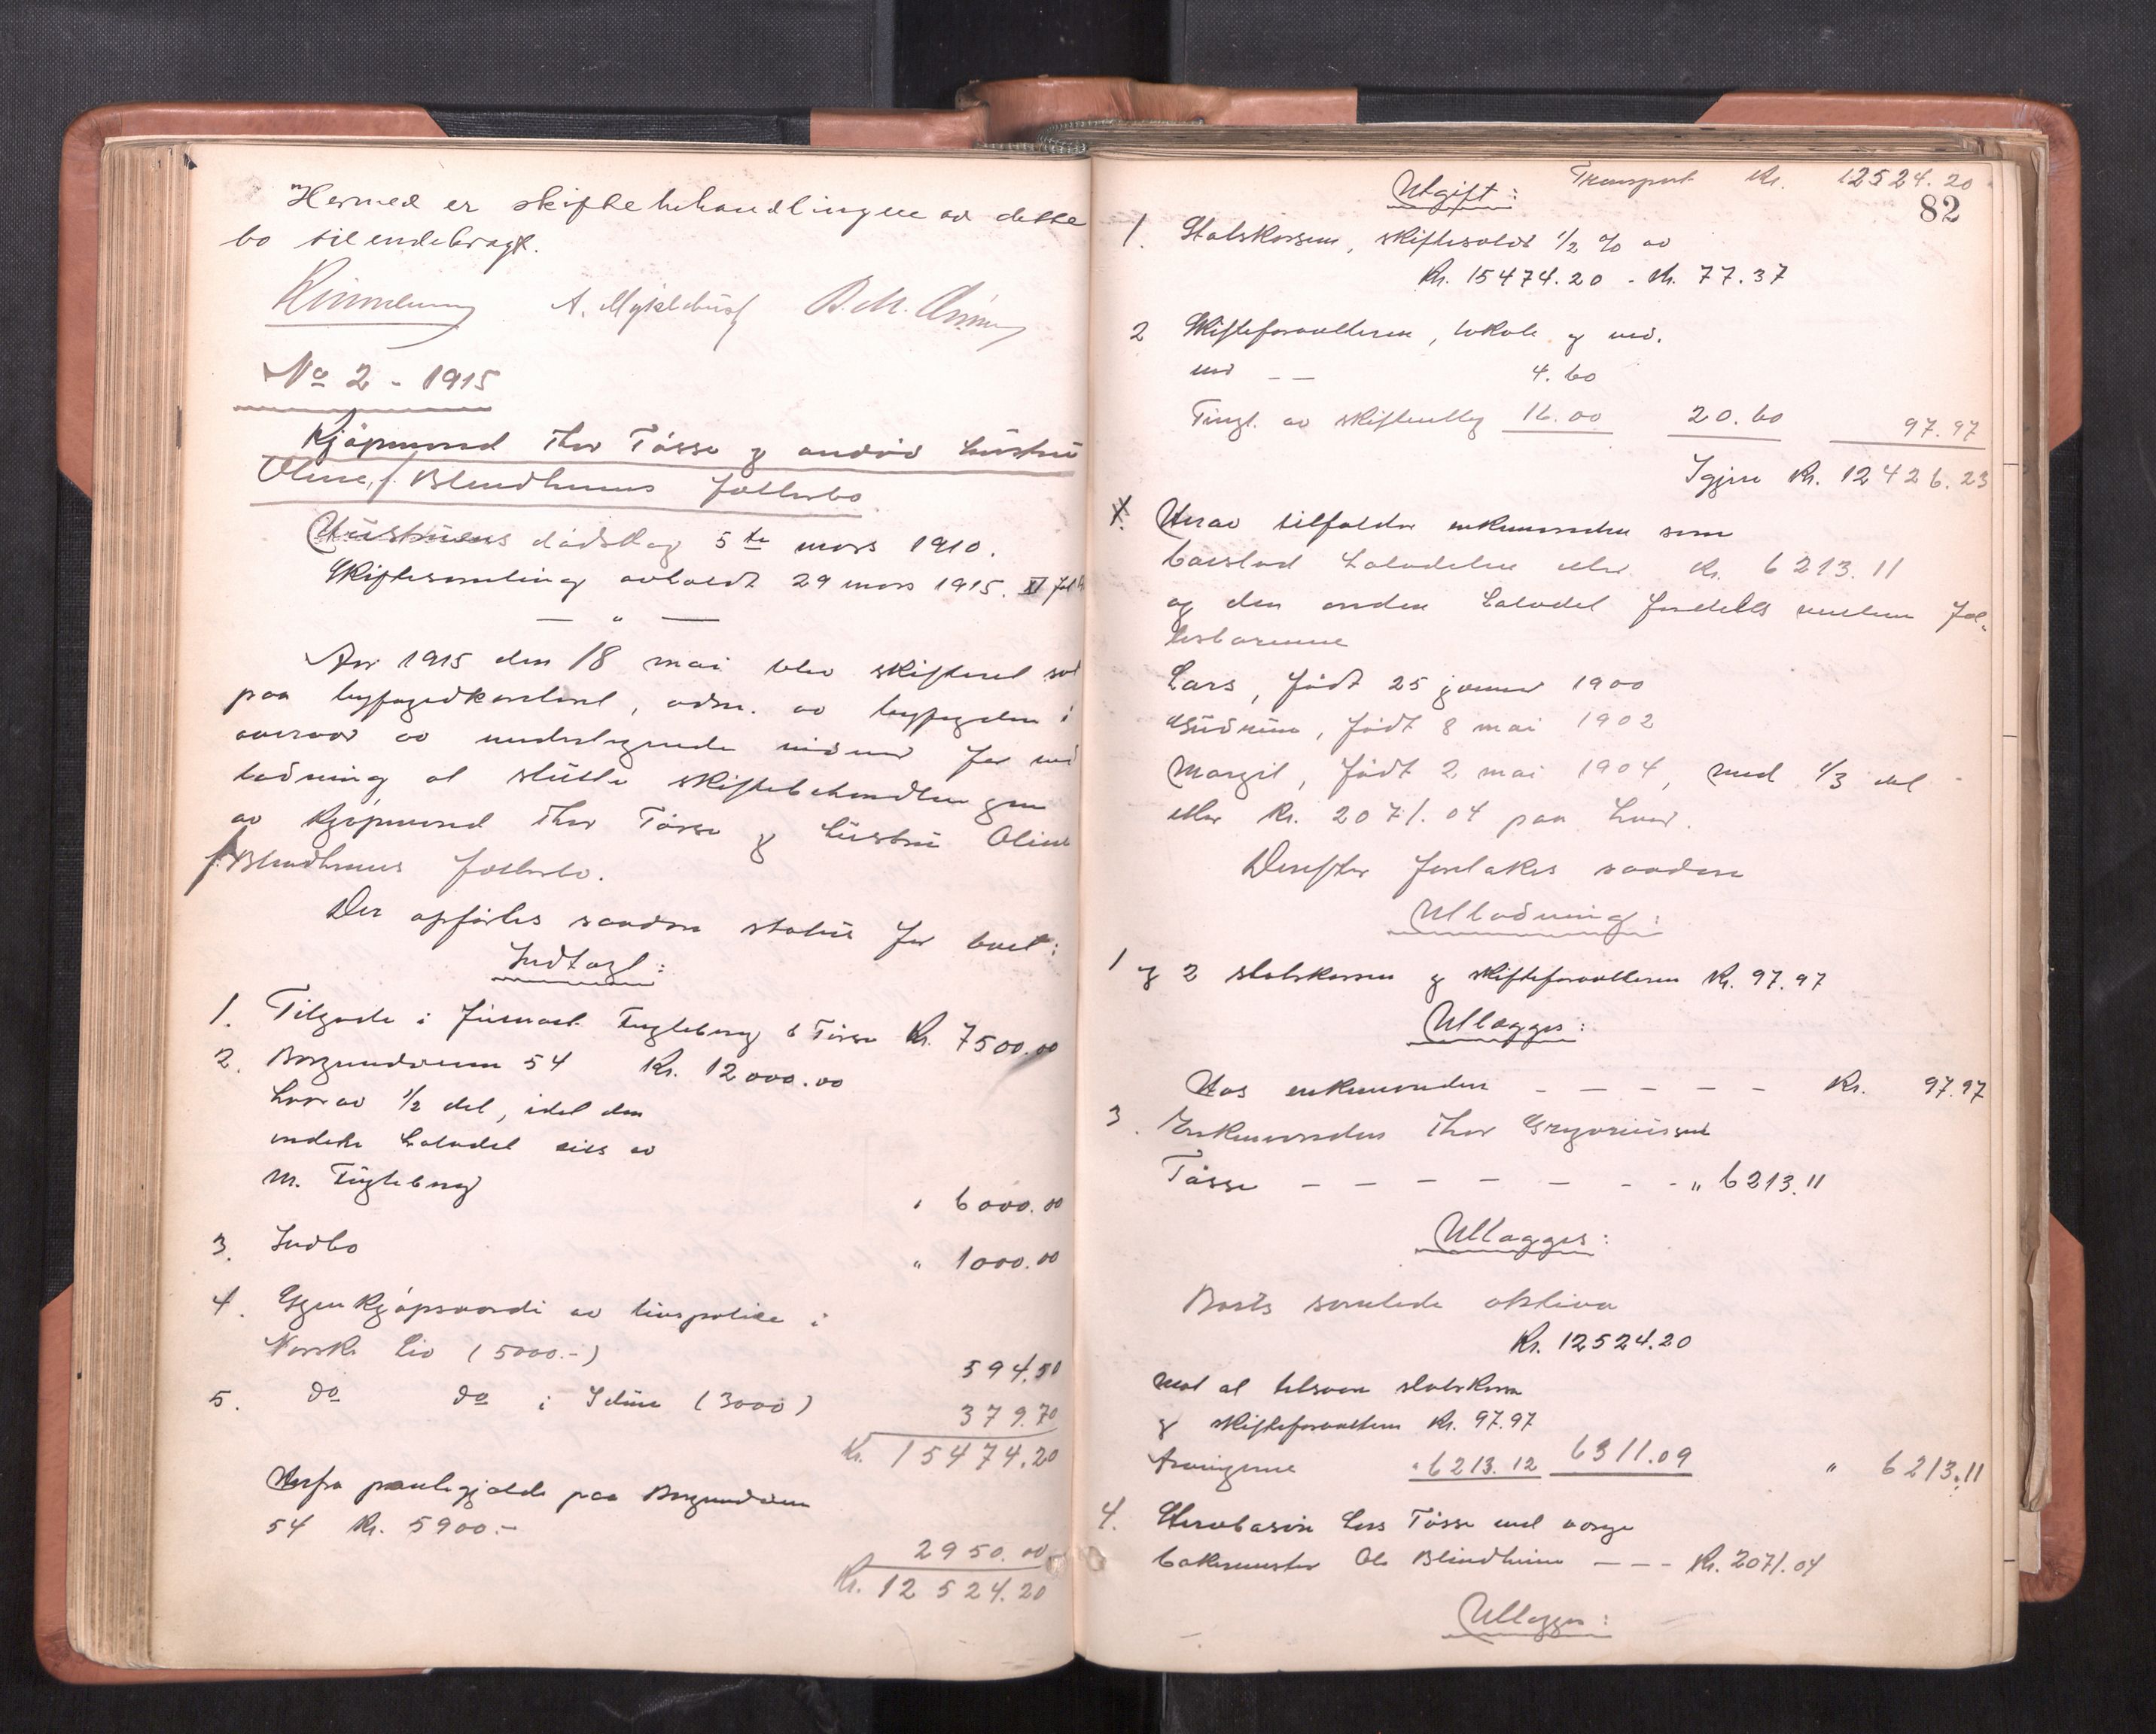 Hermed er skiftebehandlingen av dette
bo tilendebragt.
A. Myklebust
No 2 - 1915
Kjøpmand Thor Tøsse og avdød hustru
Oline, f. Blindheims fællesbo
Hustruens dødsdag 5te mars 1910.
Skiftesamling avholdt 29 mars 1915.
— " —
Aar 1915 den 18 mai blev skifteret sat
paa byfogedkontoret, adm. av byfogden i
overvær av undertegnede vidner for ved
utlodning at slutte skiftebehandlingen
av kjøpmand Thor Tøsse og hustru Oline
f. Blindheims fællesbo.
Der opførtes saadan status for boet:
Indtægt:
1. Tilgode i firmaet Fugleberg & Tøsse Kr. 7500.00
2. Borgundveien 54 Kr. 12000.00
hvorav 1/2 del, idet den
anden halvdel eies av
M. Fugleberg " 6000.00
3. Indbo " 1000.00
4. Gjenkjøpsværdi av livspolice i
Norske Liv (5000.-) 594.50
5. do do i Idun (3000) 379.70
Kr. 15474.20
Herfra pantegjæld paa Borgundveien
54 Kr. 5900.- 2950.00
Kr. 12524.20
Transport Kr. 12524.20
82
Utgift:
1. Statskassen, skiftesold 1/2 % av
Kr. 15474.20 - Kr. 77.37
2 Skifteforvalteren, lokale og vid.
4.60
Tingl. av skifteutlæg 16.00 20.60 97.97
Igjen Kr. 12426.23
Herav tilfalder enkemanden som
boeslod halvdelen eller Kr. 6213.11
og den anden halvdel fordeles mellem fæl-
lesbarnene
Lars, født 25 januar 1900
Gudrun, født 8 mai 1902
Margit, født 2 mai 1904, med 1/3 del
eller Kr. 2071.04 paa hver.
Derefter foretakes saadan
Utlodning:
1 og 2 statskassen og skifteforvalteren Kr. 97.97
Utlægges:
Hos enkemanden - - - - - Kr. 97.97
3. Enkemanden Thor Gregoriussen
Tøsse - - - - - - - " 6213.11
Utlægges:
Boets samlede aktiva
Kr. 12524.20
mot at tilsvare statskassen
og skifteforvalteren Kr. 97.97
Arvingerne " 6213.12 6311.09 " 6213.11
4. Stervbosøn Lars Tøsse ved verge
bakermester Ole Blindheim - - - Kr. 2071.04
Utlægges: